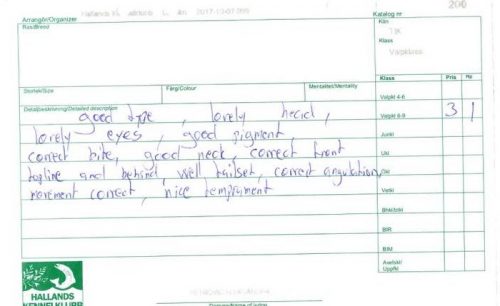 Hallands
2017-10-07
200
Arrangör/Organizer
Katalog nr
Ras/Breed
Kön
TIK
Klass
Valpklass
Storlek/Size
Färg/Colour
Mentalitet/Mentality
Klass
Pris
Detaljbeskrivning/Detailed description
Valpkl 4-6
good type, lovely head,
Valpkl 6-9
3
1
lovely eyes, good pigment,
Junkl
correct bite, good neck, correct front
Ukl
topline and behind, well tailset, correct angulation,
Ökl
movement correct, nice temprament
Vetkl
Bhkl/bkl
BIR
BIM
Avelskl/
Uppfkl
HALLANDS
KENNELKLUBB